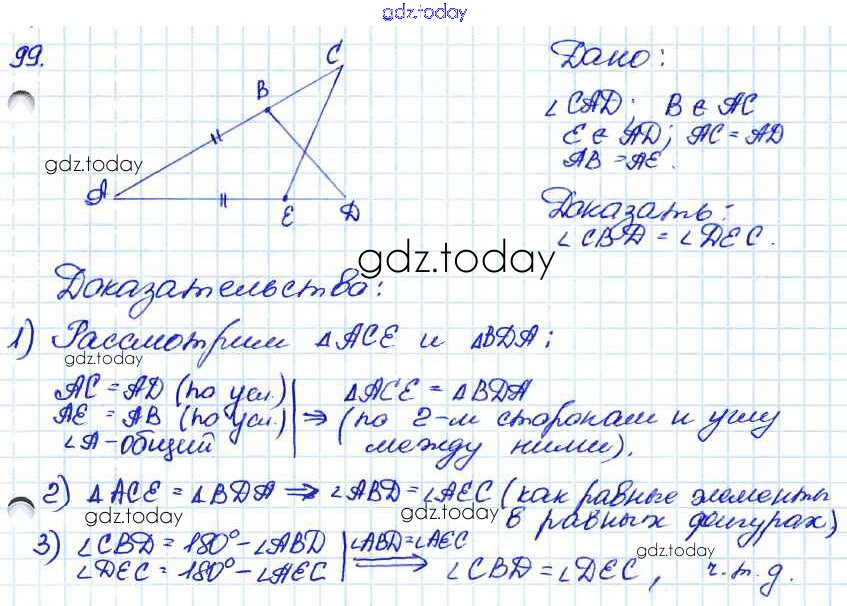 gdz.today
99.
C
B
A
E
D
gdz.today
Дано:
∠CAD; B ∈ AC
E ∈ AD; AC = AD
AB = AE.
Доказать:
∠CBD = ∠DEC.
gdz.today
Доказательство:
1) Рассмотрим △ACE и △BDA:
gdz.today
AC = AD (по усл.)
AE = AB (по усл.)
∠A - общий
⇒
△ACE = △BDA
(по 2-м сторонам и углу
между ними).
2) △ACE = △BDA ⇒ ∠ABD = ∠AEC (как равные элементы
в равных фигурах)
gdz.today
gdz.today
3) ∠CBD = 180° - ∠ABD
∠DEC = 180° - ∠AEC
∠ABD = ∠AEC
⇒
∠CBD = ∠DEC, ч.т.д.
gdz.today